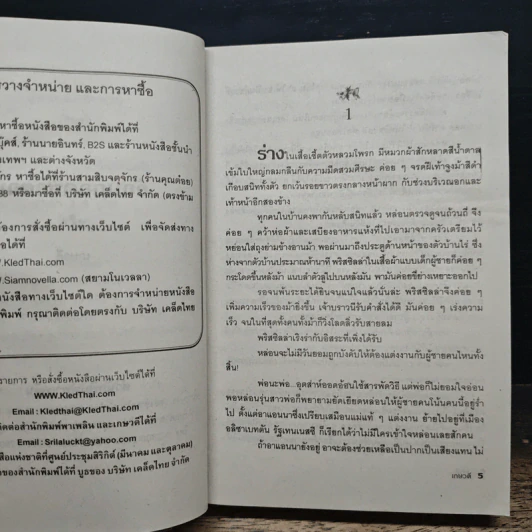 วางจำหน่าย และการหาซื้อ
หาซื้อหนังสือของสำนักพิมพ์ได้ที่
บุ๊คส์, ร้านนายอินทร์, B2S และร้านหนังสือชั้นนำ
เทพฯ และต่างจังหวัด
จักร หาซื้อได้ที่ร้านสามสิบจตุจักร (ร้านคุณต่อย)
88 หรือมาซื้อที่ บริษัท เคล็ดไทย จำกัด (ตรงข้าม
ต้องการสั่งซื้อผ่านทางเว็บไซต์ เพื่อจัดส่งทาง
ได้ที่
.KledThai.com
.Siamnovella.com (สยามโนเวลลา)
หนังสือทางเว็บไซต์ใด ต้องการจำหน่ายหนังสือ
พิมพ์ กรุณาติดต่อโดยตรงกับ บริษัท เคล็ดไทย
รายการ หรือสั่งซื้อหนังสือผ่านเว็บไซต์ได้ที่
www.KledThai.com
Email : Kledthai@KledThai.com
ติดต่อสำนักพิมพ์พาเพลิน และเกษวดีได้ที่
Email : Srilaluckt@yahoo.com
แห่งชาติที่ศูนย์ประชุมสิริกิติ์ (มีนาคม และตุลาคม)
ของสำนักพิมพ์ได้ที่ บูธของ บริษัท เคล็ดไทย จำกัด
1
ร่างในเสื้อเชิ้ตตัวหลวมโพรก มีหมวกผ้าสักหลาดสีน้ำตาล
เข้มใบใหญ่กลมกลืนกับความมืดสวมศีรษะ ค่อย ๆ จรดฝีเท้าจูงม้าสีดำ
เกือบสนิททั้งตัว ยกเว้นรอยขาวตรงกลางหน้าผาก กับช่วงบริเวณอกและ
เท้าหน้าอีกสองข้าง
ทุกคนในบ้านคงพากันหลับสนิทแล้ว หล่อนตรวจดูจนถ้วนถี่ จึง
ค่อย ๆ คว้าห่อผ้าและเสบียงอาหารแห้งที่ไปเอามาจากครัวเตรียมไว้
หย่อนใส่ถุงย่ามข้างอานม้า พอผ่านมาถึงประตูด้านหน้าของตัวบ้านไร่ ซึ่ง
ห่างจากตัวบ้านประมาณห้านาที พริสซิลล่าในเสื้อผ้าแบบเด็กผู้ชายก็ค่อยๆ
กระโดดขึ้นหลังม้า แนบลำตัวลู่ไปบนหลังมัน พามันค่อยขี่ย่างเหยาะออกไป
รอจนพ้นระยะได้ยินจนแน่ใจแล้วนั่นล่ะ พริสซิลล่าจึงค่อย ๆ
เพิ่มความเร็วของม้ายิ่งขึ้น เจ้าบราวนีรับคำสั่งได้ดี มันค่อย ๆ เร่งความ
เร็ว จนในที่สุดทั้งคนทั้งม้าก็วิ่งโลดลิ่วรับสายลม
พริสซิลล่าเริงร่ากับอิสระที่เพิ่งได้รับ
หล่อนจะไม่มีวันยอมถูกบังคับให้ต้องแต่งงานกับผู้ชายคนไหนทั้ง
สิ้น!
พ่อนะพ่อ...อุตส่าห์ออดอ้อนใช้สารพัดวิธี แต่พ่อก็ไม่ยอมใจอ่อน
พอหล่อนรุ่นสาวพ่อก็พยายามยัดเยียดหล่อนให้ผู้ชายคนโน้นคนนี้อยู่ร่ำ
ไป ตั้งแต่อาแอนนาซึ่งเปรียบเสมือนแม่แท้ ๆ แต่งงาน ย้ายไปอยู่ที่เมือง
อลิซาเบทตัน รัฐเทนเนสซี ก็เรียกได้ว่าไม่มีใครเข้าใจหล่อนเลยสักคน
ถ้าอาแอนนายังอยู่ อาจะต้องช่วยเหลือเป็นปากเป็นเสียงแทน ไม่
เกษวดี 5